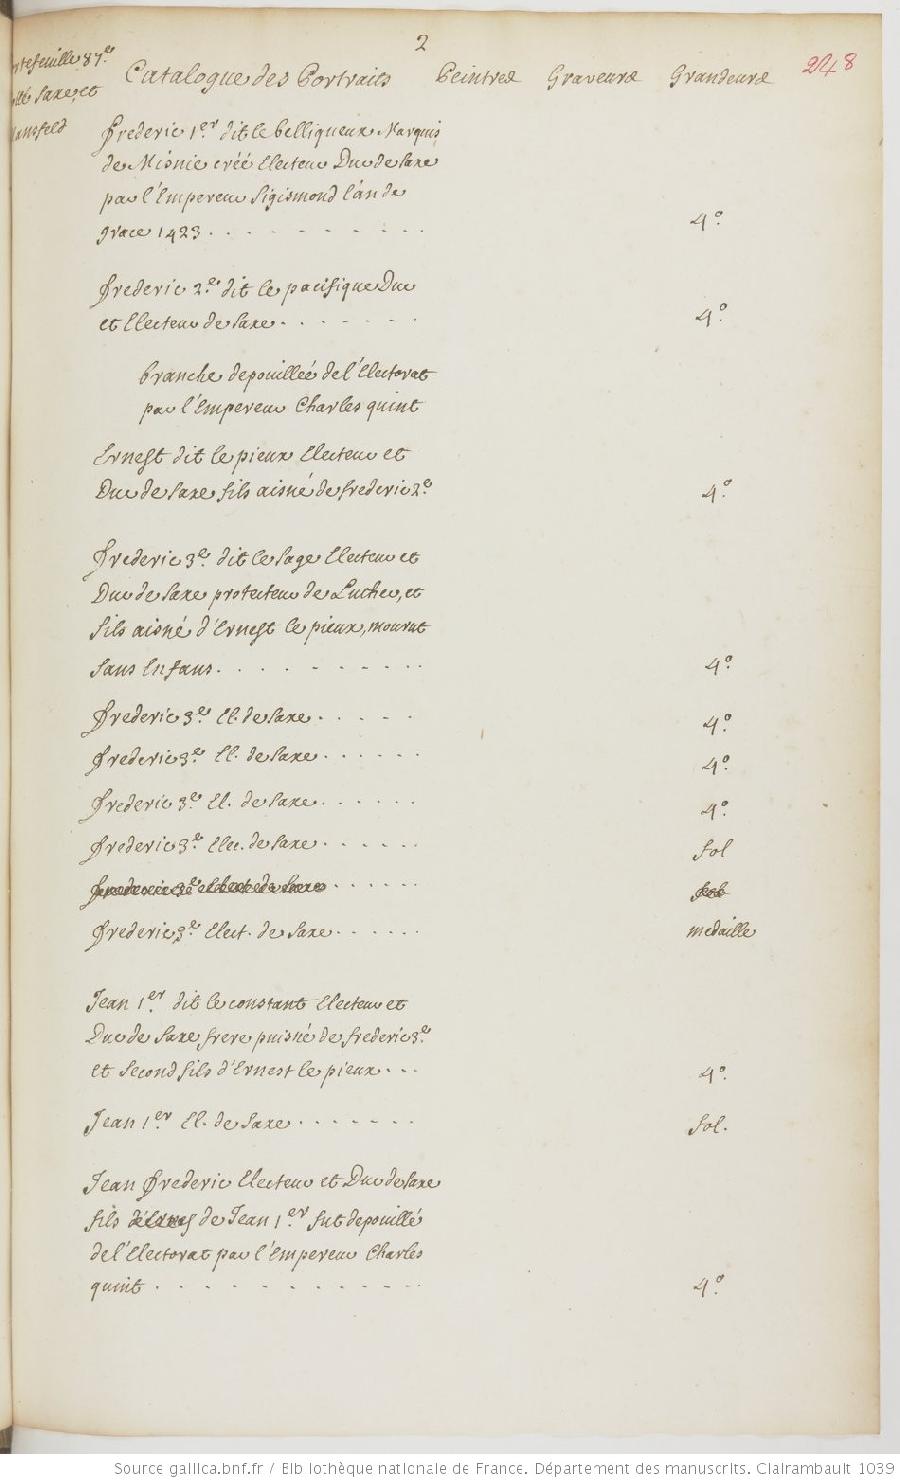 2
248
Portefeuille 87.e
Saxe, et
Mansfeld
Catalogue des Portraits Peintres Graveurs Grandeurs
Frederic 1.er dit le belliqueux Marquis
de Misnie créé Electeur Duc de Saxe
par l'Empereur Sigismond l'an de
grace 1423 . . . . . . . . . . 4.o
Frederic 2.e dit le pacifique Duc
et Electeur de Saxe . . . . . . . 4.o
branche depouilleé de l'Electorat
par l'Empereur Charles quint
Ernest dit le pieux Electeur et
Duc de Saxe fils aisné de frederic 2.e 4.o
Frederic 3.e dit le Sage Electeur et
Duc de Saxe protecteur de Luther, et
fils aisné d'Ernest le pieux, mourut
sans Enfans . . . . . . . . . . 4.o
Frederic 3.e El. de Saxe . . . . . 4.o
Frederic 3.e El. de Saxe . . . . . . 4.o
Frederic 3.e El. de Saxe . . . . . . 4.o
Frederic 3.e Elec. de Saxe . . . . . . fol
Frederic 3.e Elect. de Saxe . . . . . . medaille
Jean 1.er dit le constant Electeur et
Duc de Saxe frere puisné de frederic 3.e
et Second fils d'Ernest le pieux . . . 4.o
Jean 1.er El. de Saxe . . . . . . . fol.
Jean Frederic Electeur et Duc de Saxe
fils de Jean 1.er fut depouillé
de l'Electorat par l'Empereur Charles
quint . . . . . . . . . . . . . 4.o
Source gallica.bnf.fr / Bibliothèque nationale de France. Département des manuscrits. Clairambault 1039